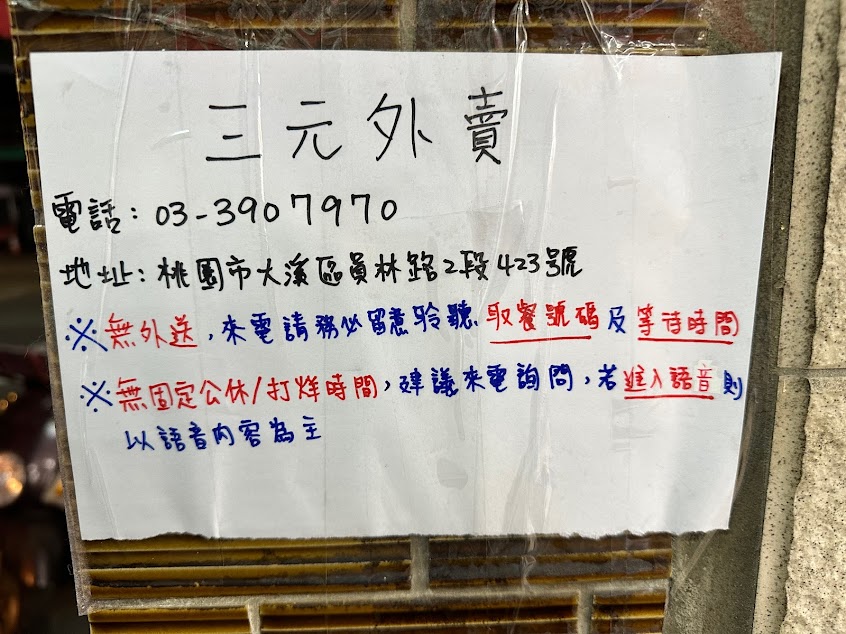 三元外賣
電話：03-3907970
地址：桃園市大溪區員林路2段423號
※無外送，來電請務必留意聆聽 取餐號碼及等待時間
※無固定公休/打烊時間，建議來電詢問，若進入語音則
以語音內容為主